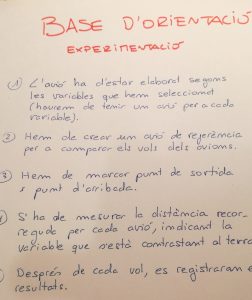 BASE D'ORIENTACIÓ
EXPERIMENTACIÓ
1 L'avió ha d'estar elaborat segons
les variables que hem seleccionat
(haurem de tenir un avió per a cada
variable).
2 Hem de crear un avió de referència
per a comparar els vols dels avions.
3 Hem de marcar punt de sortida
i punt d'arribada.
S'ha de mesurar la distància recor-
reguda per cada avió, indicant la
variable que s'està contrastant al terra
Després de cada vol, es registraran e
resultats.